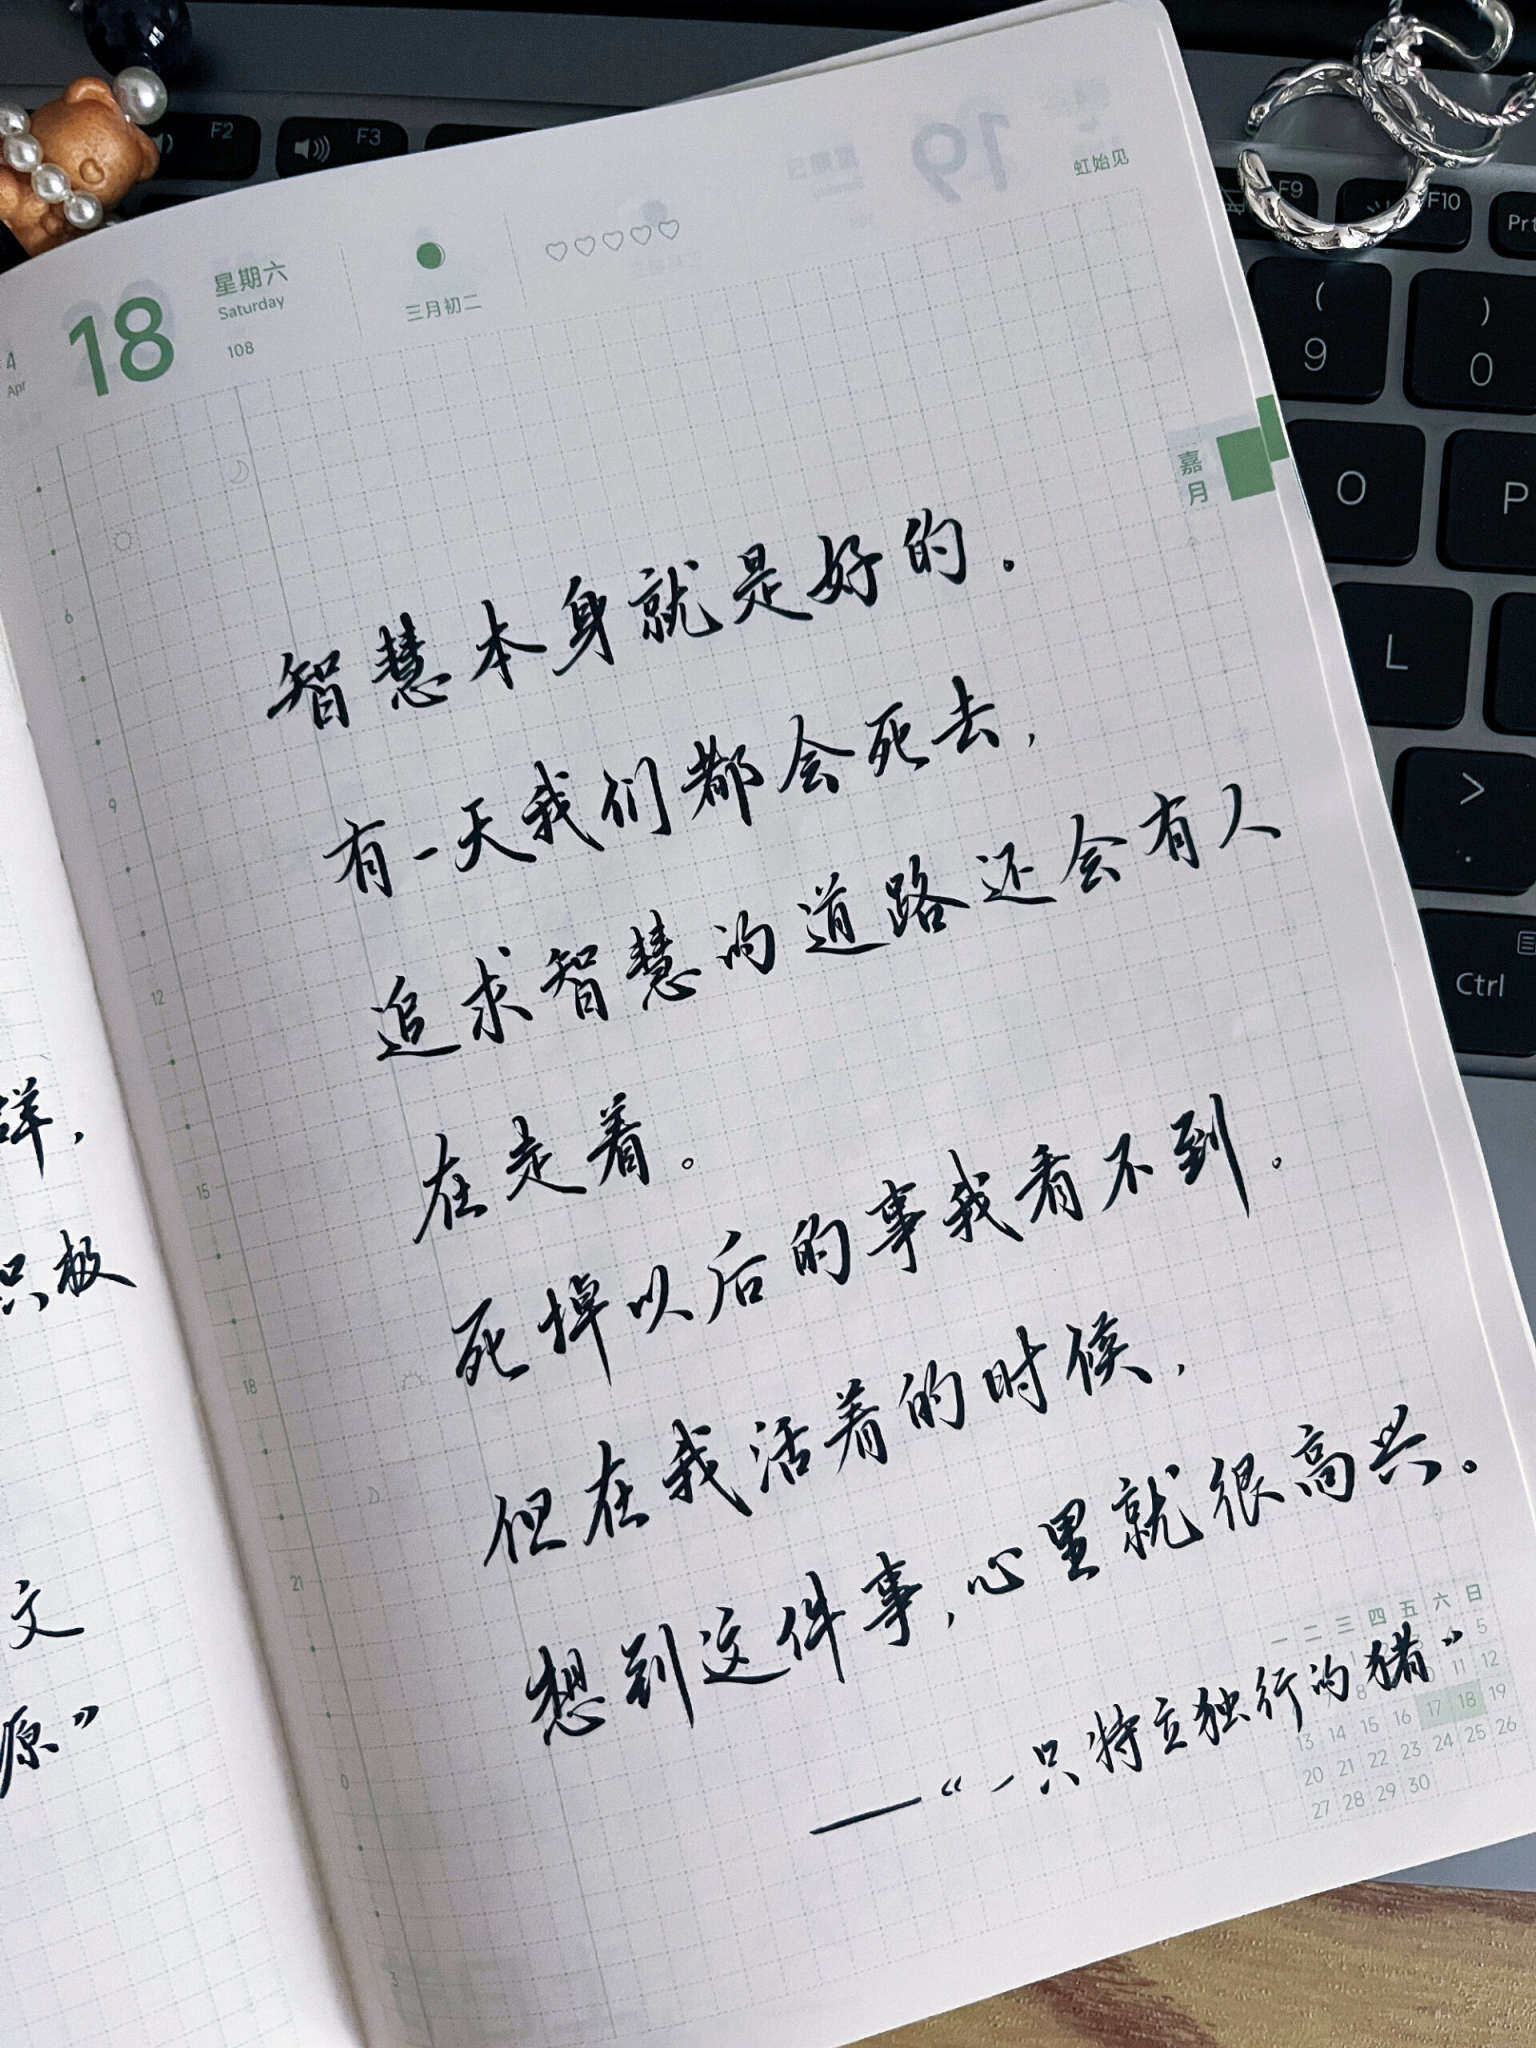 F2
F3
F9
F10
Prt
(
9
)
0
O
P
L
>
.
Ctrl
4
Apr
18
星期六
Saturday
108
三月初二
虹始见
19
嘉月
智慧本身就是好的.
有一天我们都会死去,
追求智慧的道路还会有人
在走着。
死掉以后的事我看不到.
但在我活着的时候,
想到这件事,心里就很高兴。
——“一只特立独行的猪”
6
9
12
15
18
21
0
3
一 二 三 四 五 六 日
5
11 12
13 14 15 16 17 18 19
20 21 22 23 24 25 26
27 28 29 30
样,
只极
文
源”